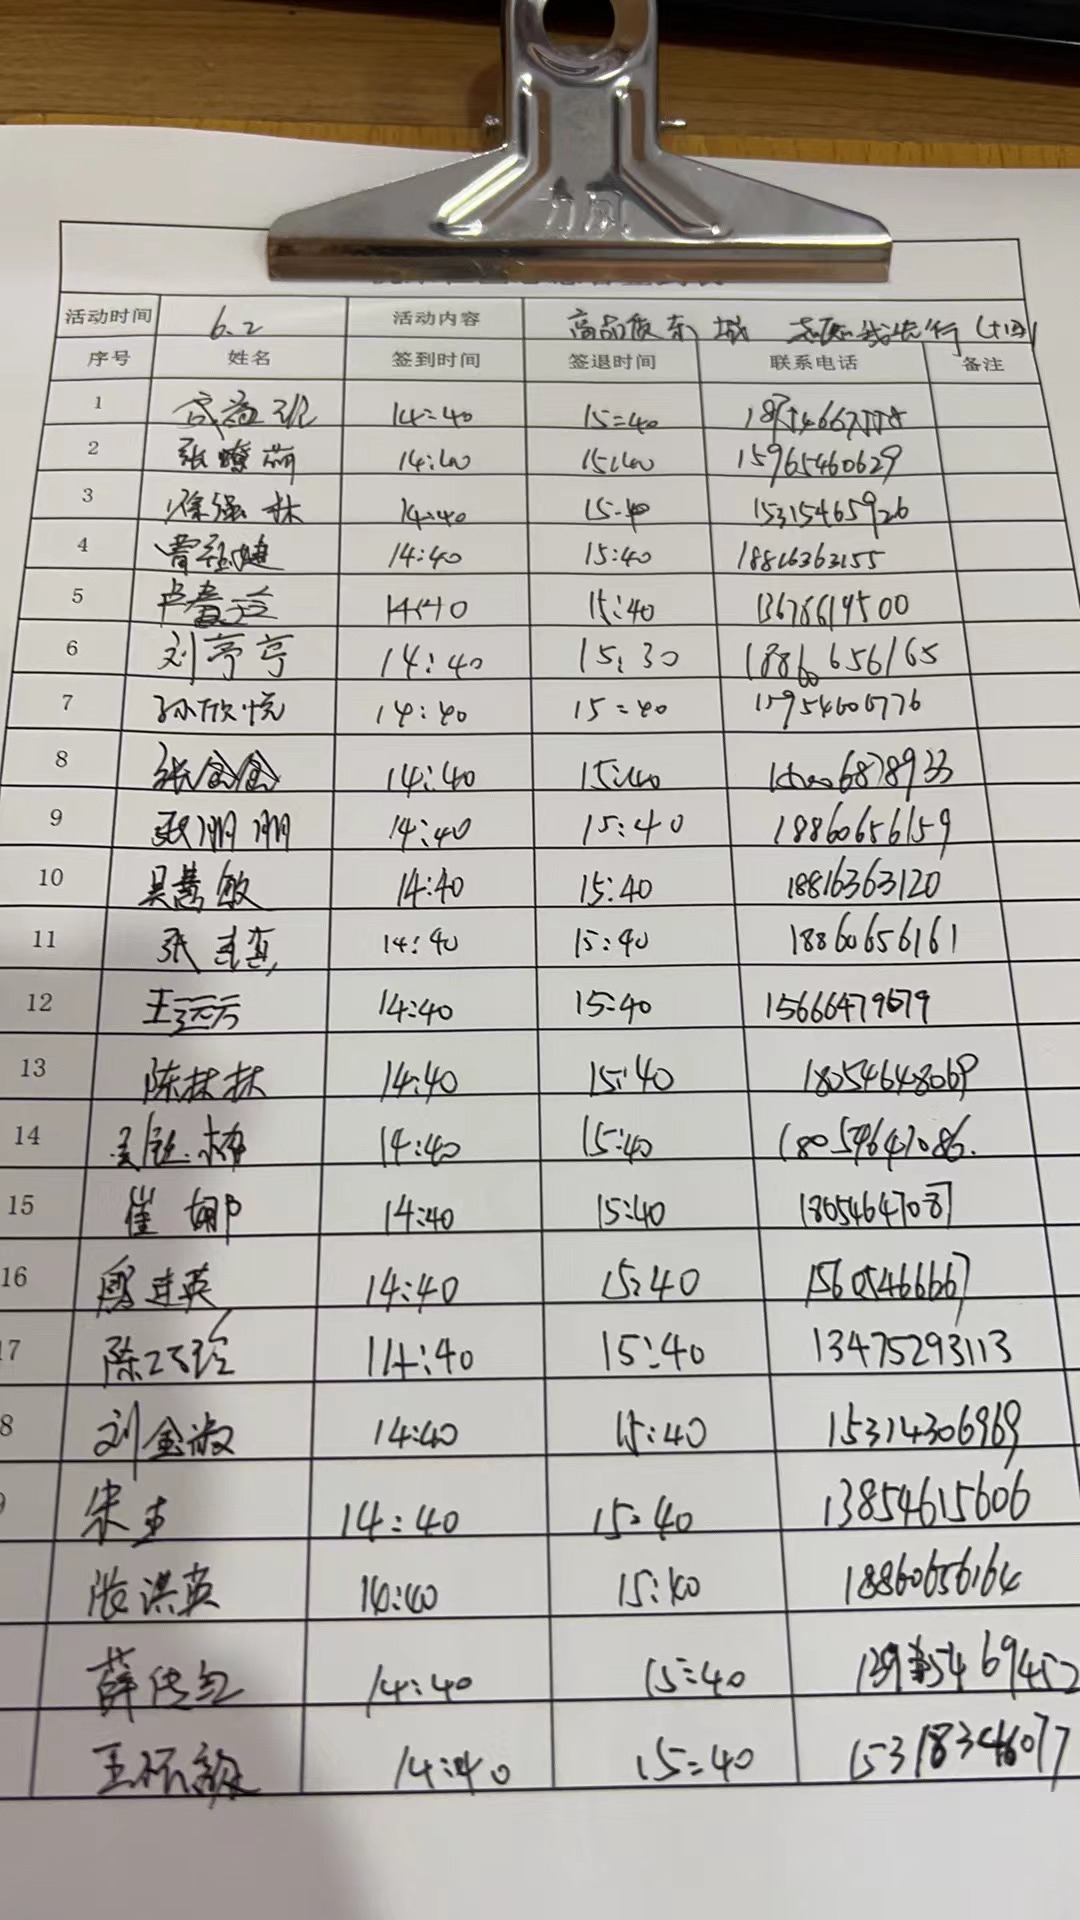 力风
活动时间 6.2 活动内容 东城
序号 姓名 签到时间 签退时间 联系电话 备注
1 14:40 15:40
2 张 14:40 15:40 15965460629
3 徐强林 14:40 15:40 15315465926
4 14:40 15:40 18816363155
5 14:40 15:40 13678619500
6 刘亭亭 14:40 15:30 656165
7 孙欣悦 14:40 15:40 15954606776
8 张金金 14:40 15:40
9 张朋朋 14:40 15:40 18860656159
10 吴慧敏 14:40 15:40 18816363120
11 张 14:40 15:40 18860656161
12 王 14:40 15:40 15666479679
13 陈林林 14:40 15:40 18054648069
14 14:40 15:40 18054647086.
15 崔娜 14:40 15:40 18054647087
16 14:40 15:40 15605466667
7 陈 14:40 15:40 13475293113
8 刘金淑 14:40 15:40 15314306969
9 宋 14:40 15:40 13854615606
张洪英 14:40 15:40 18860656164
薛传 14:40 15:40
王 14:40 15:40 15318346077